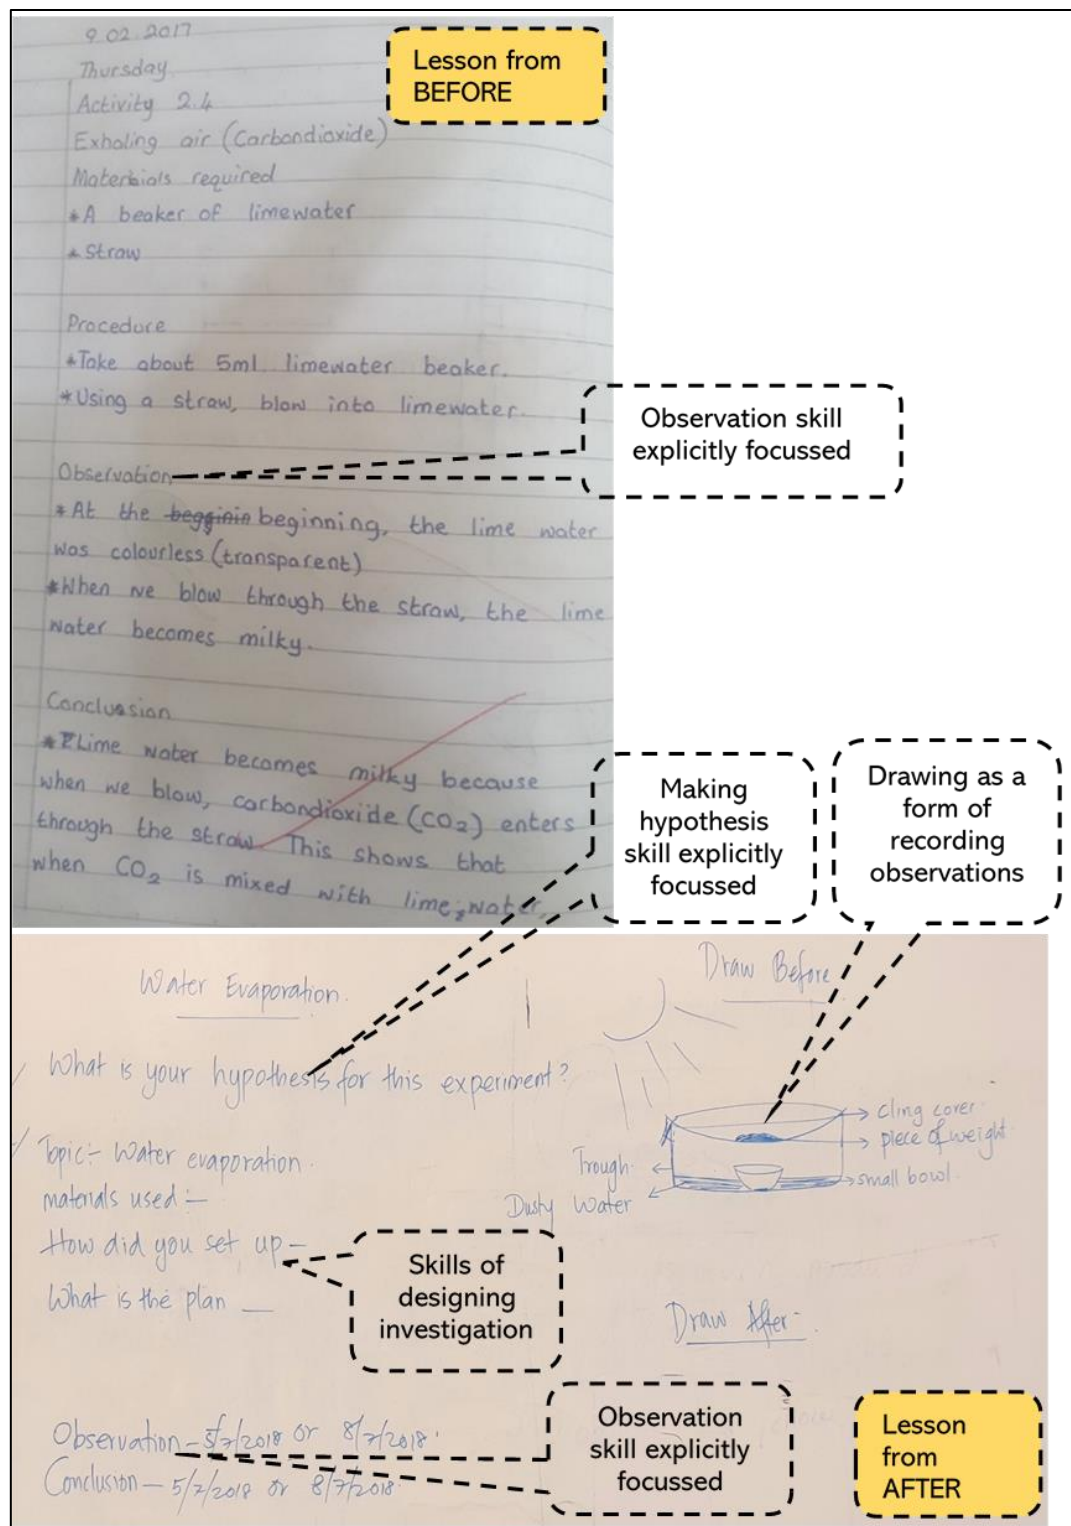 9.02.2017
Thursday
Activity 2.4
Exhaling air (Carbondioxide)
Materbials required
*A beaker of limewater
*Straw
Procedure
*Take about 5ml limewater beaker.
*Using a straw, blow into limewater.
Observation
*At the begginin beginning, the lime water
was colourless (transparent)
*When we blow through the straw, the lime
water becomes milky.
Conclusion
*Lime water becomes milky because
when we blow, carbondioxide (CO₂) enters
through the straw. This shows that
when CO₂ is mixed with lime water,
Lesson from
BEFORE
Observation skill
explicitly focussed
Making
hypothesis
skill explicitly
focussed
Drawing as a
form of
recording
observations
Water Evaporation.
What is your hypothesis for this experiment?
Topic:- Water evaporation.
materials used :-
How did you set up -
What is the plan —
Skills of
designing
investigation
Observation - 5/7/2018 or 8/7/2018.
Conclusion - 5/7/2018 or 8/7/2018.
Draw Before
cling cover
piece of weight
small bowl
Trough
Dusty Water
Draw After-
Observation
skill explicitly
focussed
Lesson
from
AFTER